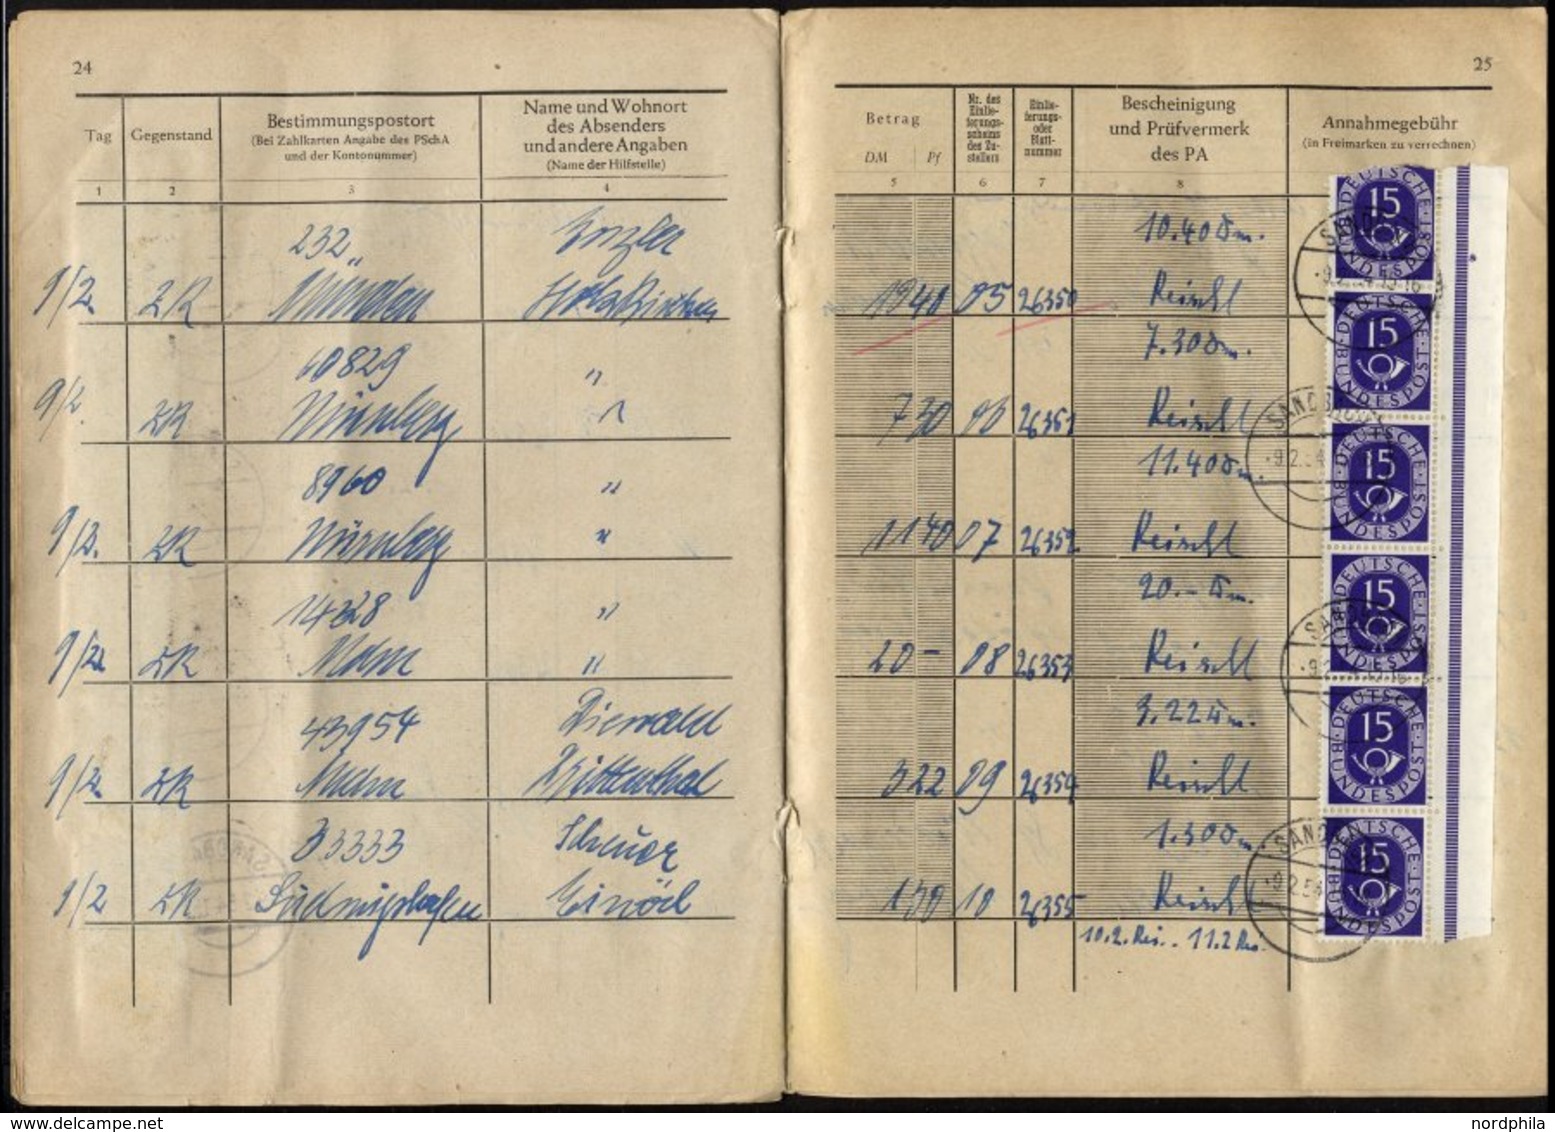 24
Tag
Gegenstand
Bestimmungspostort
(Bei Zahlkarten Angabe des PSchA
und der Kontonummer)
Name und Wohnort
des Absenders
und andere Angaben
(Name der Hilfsstelle)
1 2 3 4
232
9/2 ZK München Holzkirchen
60829 "
9/2 ZK Nürnberg "
8960 "
9/2. ZK Nürnberg "
14328 "
9/2 ZK "
43954 Dierwald
9/2 ZK
33333 Scheuer
9/2 ZK Ludwigshafen Einöd
25
Betrag
DM Pf
Nr. des
Einlie-
ferungs-
scheins
des Zu-
stellers
Einlie-
ferungs-
oder
Blatt-
nummer
Bescheinigung
und Prüfvermerk
des PA
Annahmegebühr
(in Freimarken zu verrechnen)
5 6 7 8
10.40 Dm.
10 40 05 26350 Reischl
7.30 Dm.
7 30 06 26351 Reischl
11.40 Dm.
11 40 07 26352 Reischl
20.- Dm.
20 - 08 26353 Reischl
3.22 Dm.
3 22 09 26354 Reischl
1.30 Dm.
1 30 10 26355 Reischl
10.2. Rei. - 11.2 Rei.
DEUTSCHE BUNDESPOST 15
DEUTSCHE BUNDESPOST 15
DEUTSCHE BUNDESPOST 15
DEUTSCHE BUNDESPOST 15
DEUTSCHE BUNDESPOST 15
DEUTSCHE BUNDESPOST 15
-9.2.54
nordphila